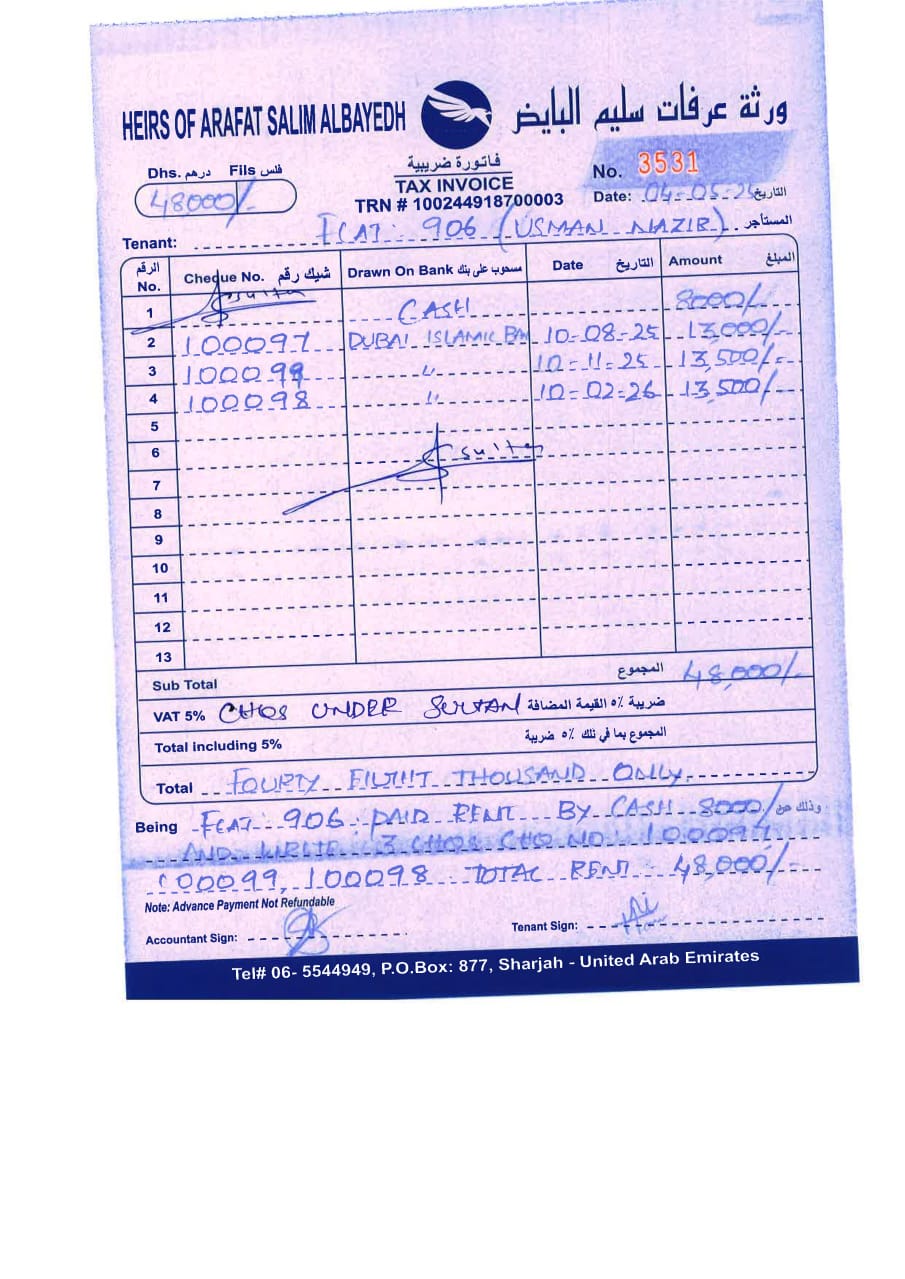 HEIRS OF ARAFAT SALIM ALBAYEDH
ورثة عرفات سليم البايض
Dhs. درهم Fils فلس
48000/-
فاتورة ضريبية
TAX INVOICE
TRN # 100244918700003
No. 3531
Date: 04-05-25 التاريخ
Tenant: FLAT: 906 (USMAN NAZIR) المستأجر
الرقم No. Cheque No. شيك رقم Drawn On Bank مسحوب على بنك Date التاريخ Amount المبلغ
1 CASH 8000/-
2 100097 DUBAI ISLAMIC BAN 10-08-25 13,000/-
3 100099 " 10-11-25 13,500/-
4 100098 " 10-02-26 13,500/-
5
6
7
8
9
10
11
12
13
Sub Total المجموع 48,000/-
VAT 5% CHQS UNDER SULTAN ضريبة ٥% القيمة المضافة
Total including 5% المجموع بما في ذلك ٥% ضريبة
Total FOURTY EIGHT THOUSAND ONLY
Being FLAT: 906 PAID RENT BY CASH 8000/ وذلك عن
AND WRITE 3 CHQS CHQ NO: 100097
100099, 100098 TOTAL RENT: 48,000/-
Note: Advance Payment Not Refundable
Accountant Sign: Tenant Sign:
Tel# 06- 5544949, P.O.Box: 877, Sharjah - United Arab Emirates